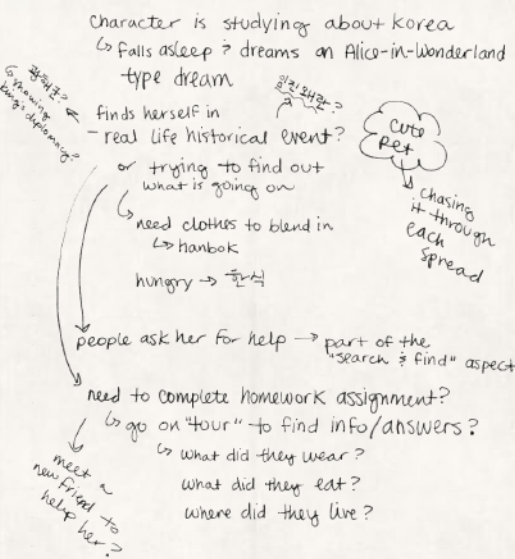 character is studying about korea
↳ falls asleep & dreams an Alice-in-Wonderland
type dream
광해군?
↳ showing
king's diplomacy?
임진왜란?
finds herself in
- real life historical event?
or trying to find out
what is going on
cute
pet
chasing
it through
each
spread
↳ need clothes to blend in
↳ hanbok
hungry → 한식
people ask her for help → part of the
"search & find" aspect
need to complete homework assignment?
↳ go on "tour" to find info/answers?
↳ what did they wear?
what did they eat?
where did they live?
meet a
new friend to
help her?